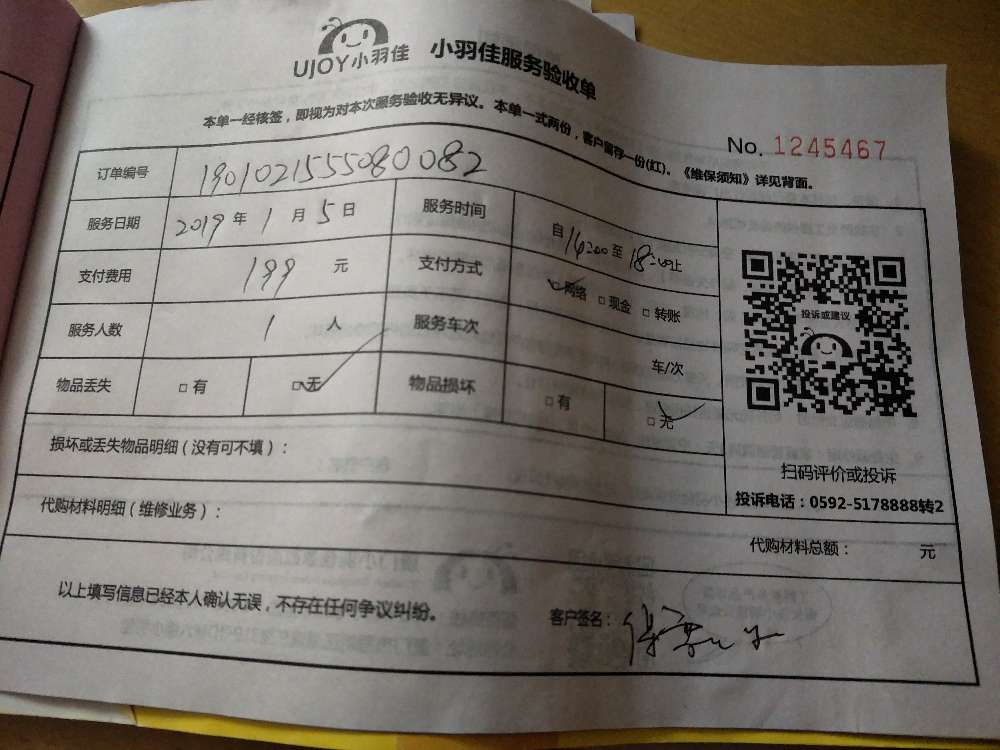 UJOY小羽佳 小羽佳服务验收单
本单一经核签，即视为对本次服务验收无异议。本单一式两份，客户留存一份(红)。《维保须知》详见背面。
No. 1245467
订单编号 190102155508 0082
服务日期 2019 年 1 月 5 日 服务时间 自 14:00 至 18:00 止
支付费用 199 元 支付方式 网络 □ 现金 □ 转账
服务人数 1 人 服务车次 车/次
物品丢失 □ 有 □ 无 物品损坏 □ 有 □ 无
投诉或建议
扫码评价或投诉
投诉电话：0592-5178888转2
损坏或丢失物品明细（没有可不填）：
代购材料明细（维修业务）：
代购材料总额： 元
以上填写信息已经本人确认无误，不存在任何争议纠纷。
客户签名：